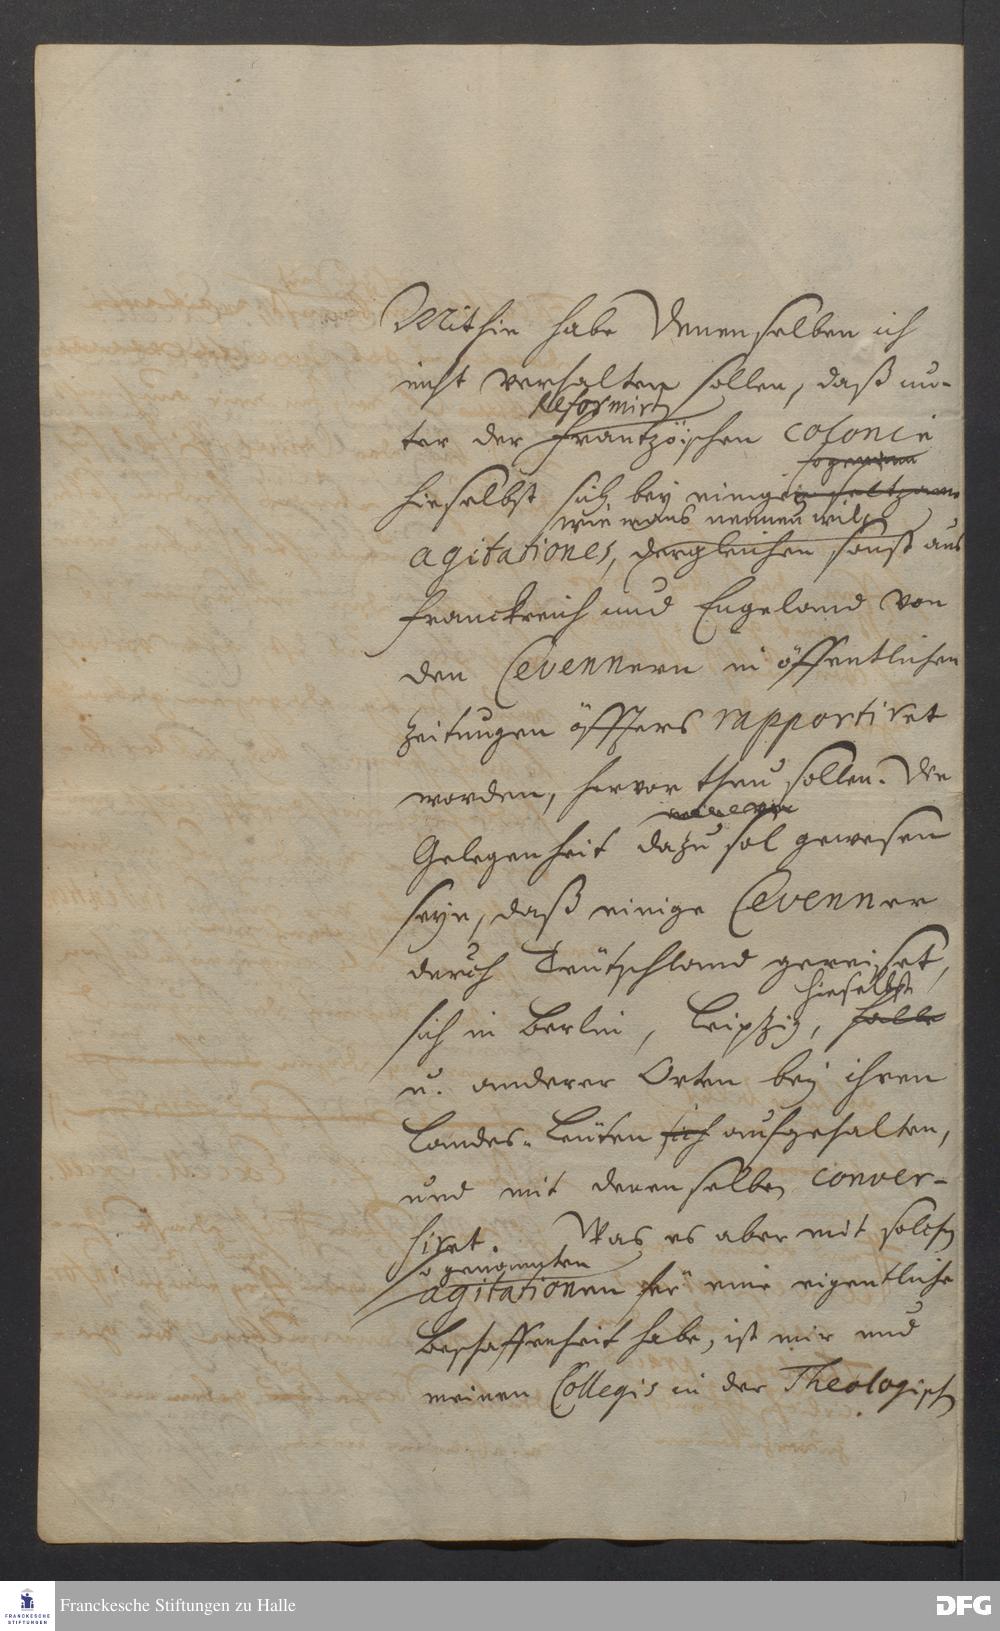 Mithin habe Denenselben ich
nicht verhalten sollen, daß un-
Reformirt
ter der Frantzöischen colonie
hieselbst sich bey einigen seltzame
wie mans nennen will
agitationes, dergleichen sonst aus
Franckreich und Engeland von
den Cevennern in öffentlichen
Zeitungen öffters rapportiret
worden, hervor thun sollen. Die
Gelegenheit dazu sol gewesen
seyn, daß einige Cevenner
durch Teütschland gereiset,
hieselbst
sich in Berlin, Leipzig, Halle
u. anderer Orten bey ihren
Landes-Leüten sich aufgehalten,
und mit denenselben conver-
siret. Was es aber mit solchen
so genannten
agitationen für eine eigentliche
Beschaffenheit habe, ist mir und
meinen Collegis in der Theologisch
Franckesche Stiftungen zu Halle
FRANCKESCHE
STIFTUNGEN
DFG